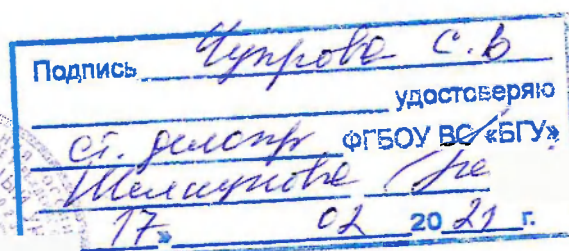 Подпись Чупрова С. В
удостоверяю
ст. делопр. ФГБОУ ВО «БГУ»
17» 02 20 21 г.